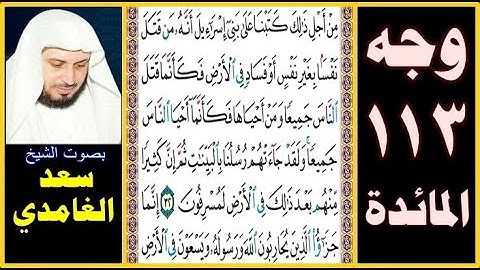 وجه
١١٣
المائدة
مِنْ أَجْلِ ذَٰلِكَ كَتَبْنَا عَلَىٰ بَنِىٓ إِسْرَٰٓءِيلَ أَنَّهُۥ مَن قَتَلَ
نَفْسًۢا بِغَيْرِ نَفْسٍ أَوْ فَسَادٍ فِى ٱلْأَرْضِ فَكَأَنَّمَا قَتَلَ
ٱلنَّاسَ جَمِيعًا وَمَنْ أَحْيَاهَا فَكَأَنَّمَآ أَحْيَا ٱلنَّاسَ
جَمِيعًا وَلَقَدْ جَآءَتْهُمْ رُسُلُنَا بِٱلْبَيِّنَٰتِ ثُمَّ إِنَّ كَثِيرًا
مِّنْهُم بَعْدَ ذَٰلِكَ فِى ٱلْأَرْضِ لَمُسْرِفُونَ ٣٢ إِنَّمَا
جَزَٰٓؤُا۟ ٱلَّذِينَ يُحَارِبُونَ ٱللَّهَ وَرَسُولَهُۥ وَيَسْعَوْنَ فِى ٱلْأَرْضِ
بصوت الشيخ
سعد
الغامدي